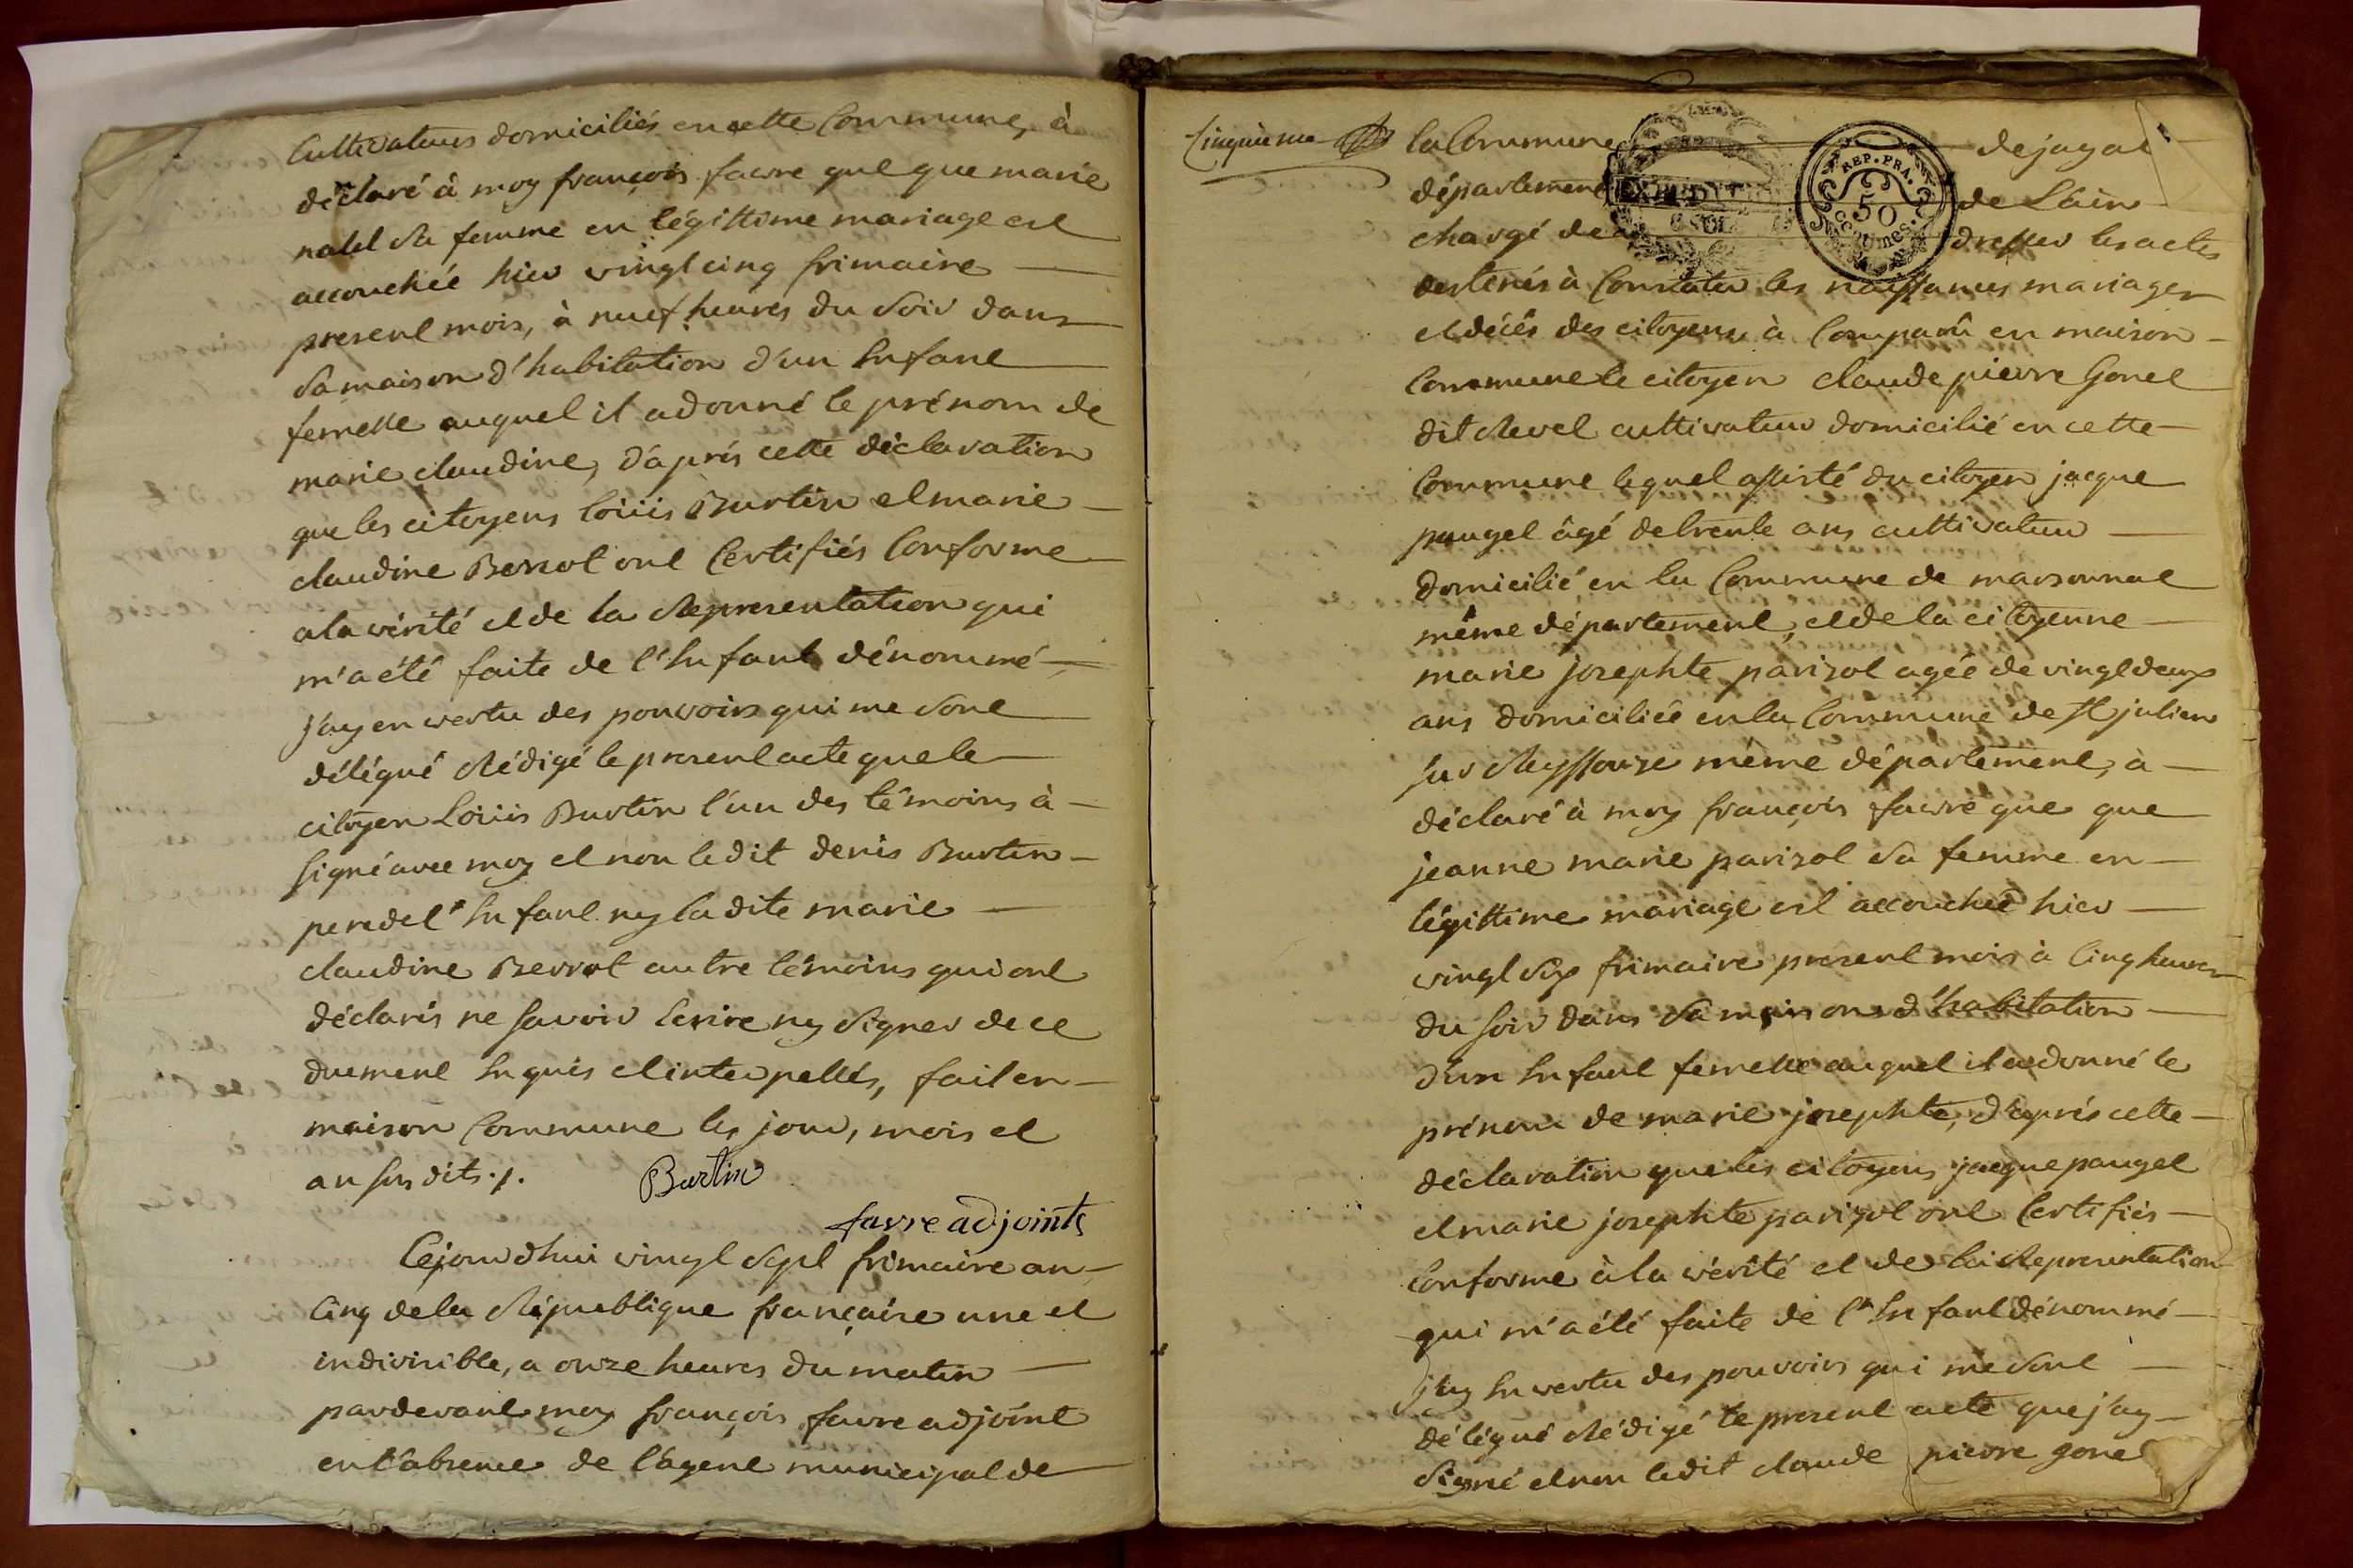 Cultivateurs domiciliés en cette Commune, à
déclaré à moy françois favre que que marie
nalet sa femme en légittime mariage est
accouchée hier vingt cinq frimaire
present mois, à neuf heures du soir dans
sa maison d'habitation d'un Enfant
femelle auquel il a donné le prénom de
marie claudine, d'après cette déclaration
que les citoyens loüis Burtin et marie
claudine Berrot ont Certifiés Conforme
a la vérité et de la Representation qui
m'a été faite de l'Enfant dénommé
j'ay en vertu des pouvoirs qui me sont
délégué Rédigé le present acte que le
citoyen Loüis Burtin l'un des témoins à
signé avec moy et non ledit denis Burtin
pere de l'Enfant ny ladite marie
claudine Berrot autre témoins qui ont
déclarés ne savoir Ecrire ny signer de ce
duement Enquis et interpellés, fait en
maison Commune les jour, mois et
an susdits ./.
Burtin
favre adjoints
Cejourdhui vingt sept frimaire an
Cinq de la République française une et
indivisible, a onze heures du matin
pardevant moy françois favre adjoint
en l'absence de l'agent municipal de
Cinquieme
la Commune de jayat
REP. FRA.
50
CENTIMES.
département de L'ain
chargé de dresser les actes
destinés à Constater les naissances mariages
et décés des citoyens à Comparû en maison
Commune le citoyen claude pierre Gonel
dit Revel cultivateur domicilié en cette
Commune lequel assisté du citoyen jacque
paugel âgé de trente ans cultivateur
domicilié en la Commune de marsonnat
même département, et de la citoyenne
marie josephte parizol agée de vingt deux
ans domiciliée en la Commune de St julien
sur Reyssouze même département, à
déclaré à moy françois favre que que
jeanne marie parizol sa femme en
légittime mariage est accouchée hier
vingt six frimaire present mois à Cinq heures
du soir dans sa maison d'habitation
d'un Enfant femelle auquel il a donné le
prénom de marie josephte, d'après cette
déclaration que les citoyens jacque paugel
et marie josephte parizol ont Certifiés
Conforme à la vérité et de la Representation
qui m'a été faite de l'Enfant dénommé
j'ay En vertu des pouvoirs qui me sont
délégué Rédigé le present acte que j'ay
signé et non ledit claude pierre gonel